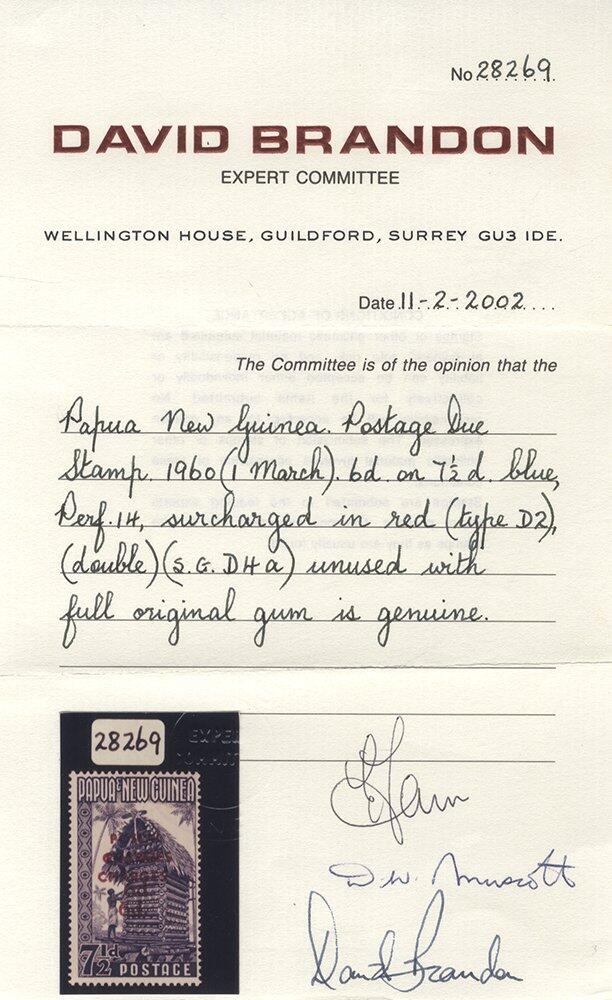 No 28269
DAVID BRANDON
EXPERT COMMITTEE
WELLINGTON HOUSE, GUILDFORD, SURREY GU3 IDE.
Date 11-2-2002
The Committee is of the opinion that the
Papua New Guinea. Postage Due
Stamp. 1960 (1 March). 6d. on 7½d. blue,
Perf. 14, surcharged in red (type D2),
(double) (S.G. D4a) unused with
full original gum is genuine.
28269
PAPUA & NEW GUINEA
POSTAL
CHARGES
7½d POSTAGE
D.W. Muscott
David Brandon